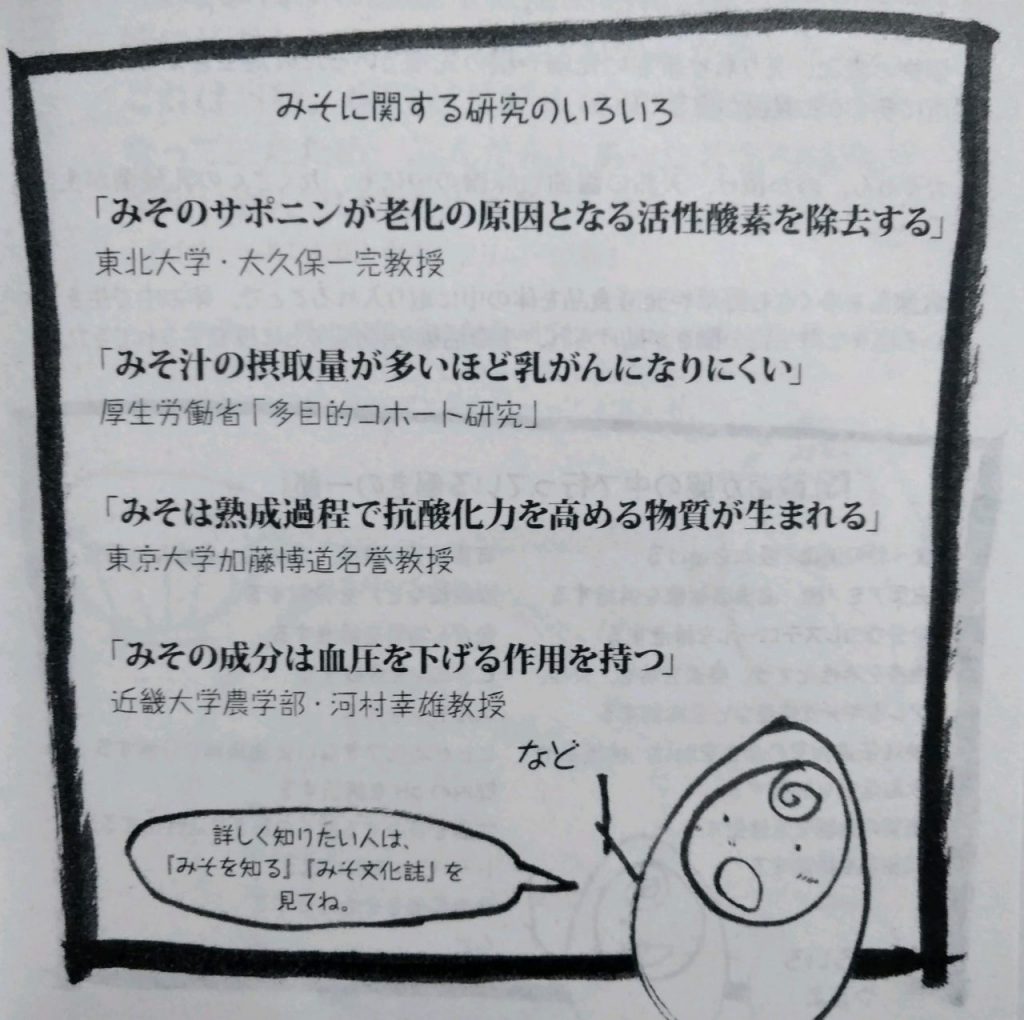 みそに関する研究のいろいろ
「みそのサポニンが老化の原因となる活性酸素を除去する」
東北大学・大久保一完教授
「みそ汁の摂取量が多いほど乳がんになりにくい」
厚生労働省「多目的コホート研究」
「みそは熟成過程で抗酸化力を高める物質が生まれる」
東京大学加藤博道名誉教授
「みその成分は血圧を下げる作用を持つ」
近畿大学農学部・河村幸雄教授
など
詳しく知りたい人は、
『みそを知る』『みそ文化誌』を
見てね。